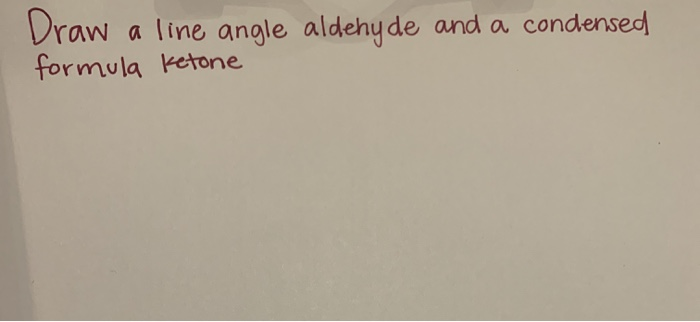 Draw a line angle aldehyde and a condensed
formula ketone